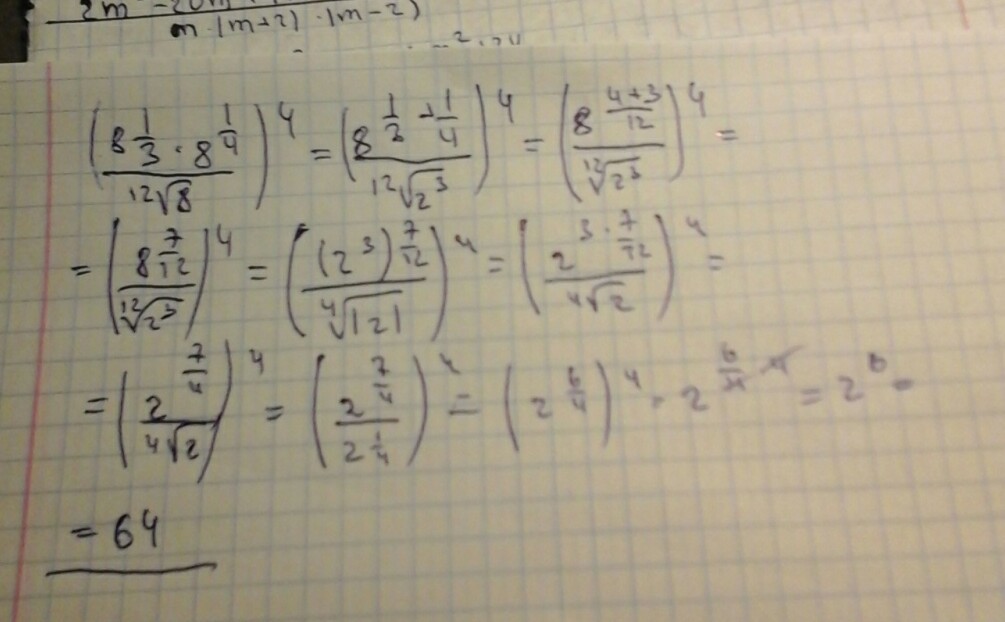 m·(m+2)·(m-2)
(8^{1/3}·8^{1/4} / ¹²√8)^4 = (8^{1/3+1/4} / ¹²√2^3)^4 = (8^{(4+3)/12} / ¹²√2^3)^4 =
= (8^{7/12} / ¹²√2^3)^4 = ((2^3)^{7/12} / ⁴√|2|)^4 = (2^{3·7/12} / ⁴√2)^4 =
= (2^{7/4} / ⁴√2)^4 = (2^{7/4} / 2^{1/4})^4 = (2^{6/4})^4 = 2^{6/4·4} = 2^6 =
= 64